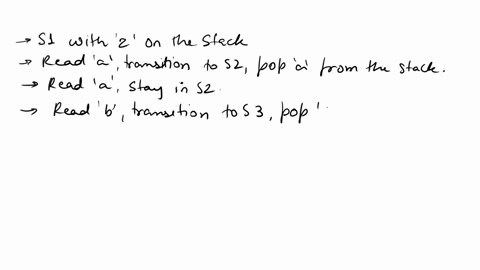 → S1 with 'z' on the stack
→ Read 'a', transition to S2, pop 'a' from the stack.
→ Read 'a', stay in S2.
→ Read 'b', transition to S3, pop '